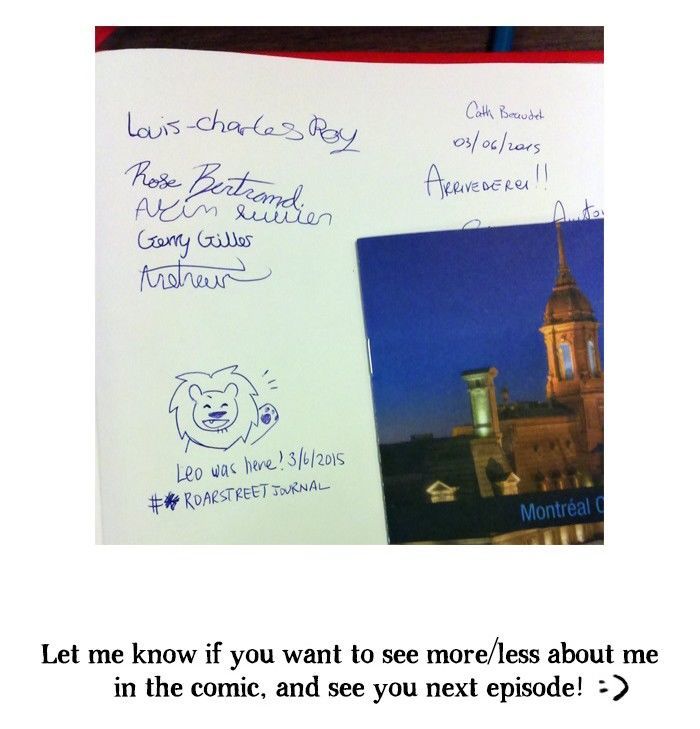 Louis-Charles Roy
Rose Bertrand
Gerry Gilles
Cath Beaudet
03/06/2015
ARRIVEDERCI!!
Leo was here! 3/6/2015
# ROARSTREET JOURNAL
Montréal
Let me know if you want to see more/less about me
in the comic, and see you next episode! :)